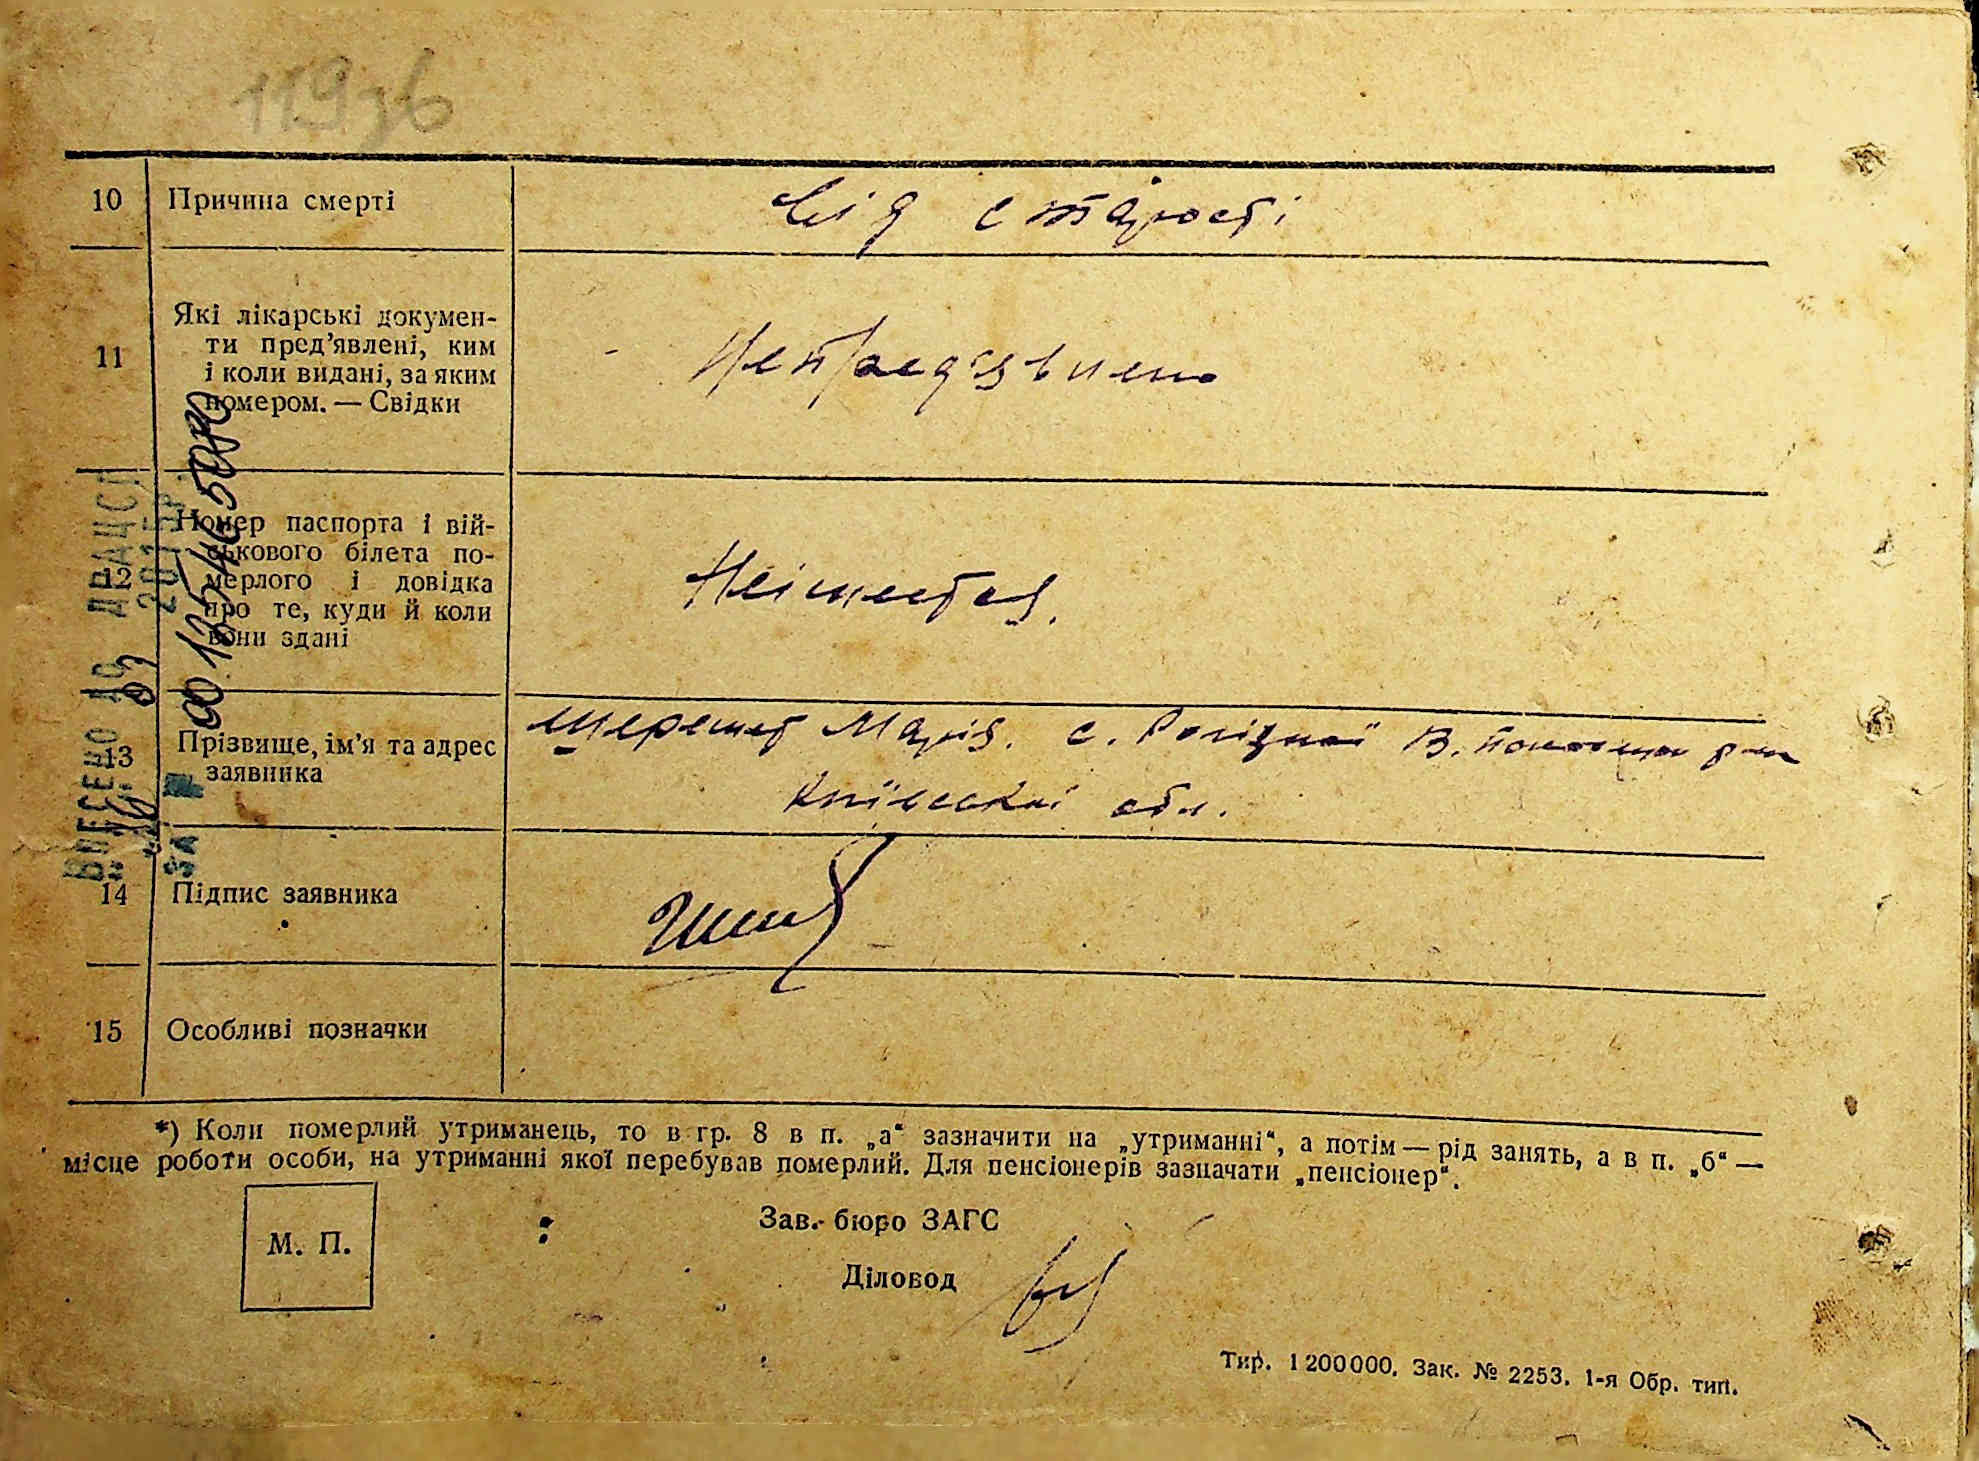 119зв
10 Причина смерті від старості
11 Які лікарські документи пред'явлені, ким і коли видані, за яким номером. — Свідки
Непредъявлено
12 Номер паспорта і військового білета померлого і довідка про те, куди й коли вони здані
Неімеется.
13 Прізвище, ім'я та адрес заявника
Марія. с. В. р-н
Київської обл.
14 Підпис заявника
15 Особливі позначки
*) Коли померлий утриманець, то в гр. 8 в п. „а“ зазначити на „утриманні“, а потім — рід занять, а в п. „б“ —
місце роботи особи, на утриманні якої перебував померлий. Для пенсіонерів зазначати „пенсіонер“.
М. П.
Зав. бюро ЗАГС
Діловод
Тир. 1 200 000. Зак. № 2253. 1-я Обр. тип.
ВНЕСЕНО ДО ДРАЦСГ
ЗА №